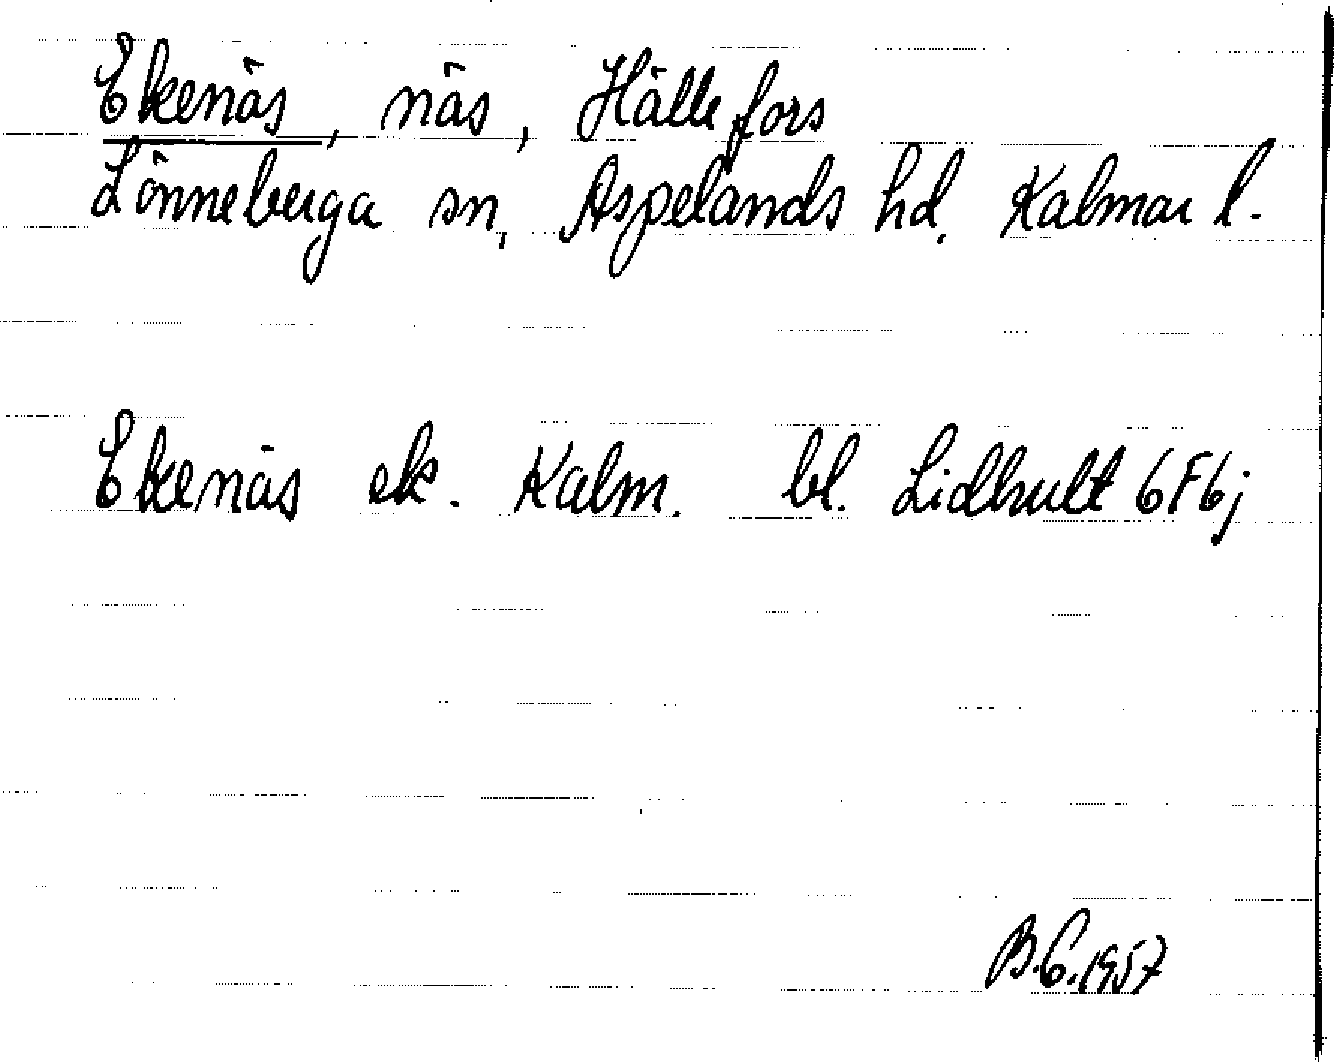 Ekenäs, näs, Hällefors
Lönneberga sn, Aspelands hd. Kalmar l.
Ekenäs ek. Kalm. bl. Lidhult 6F6j
B.E.1957